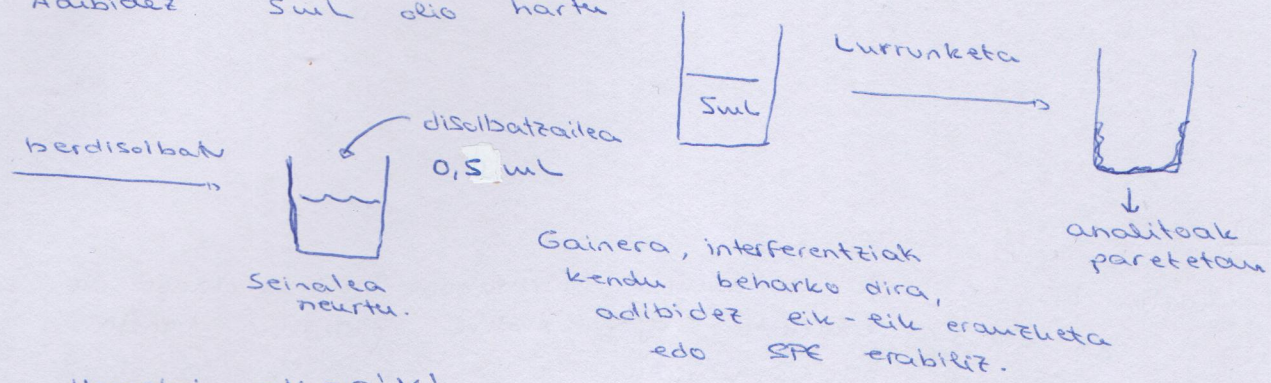 Adibidez 5mL olio hartu
5mL
Lurrunketa
analitoak
paretetan
berdisolbatu
disolbatzailea
0,5 mL
Seinalea
neurtu.
Gainera, interferentziak
kendu beharko dira,
adibidez eik-eik erauzketa
edo SPE erabiliz.